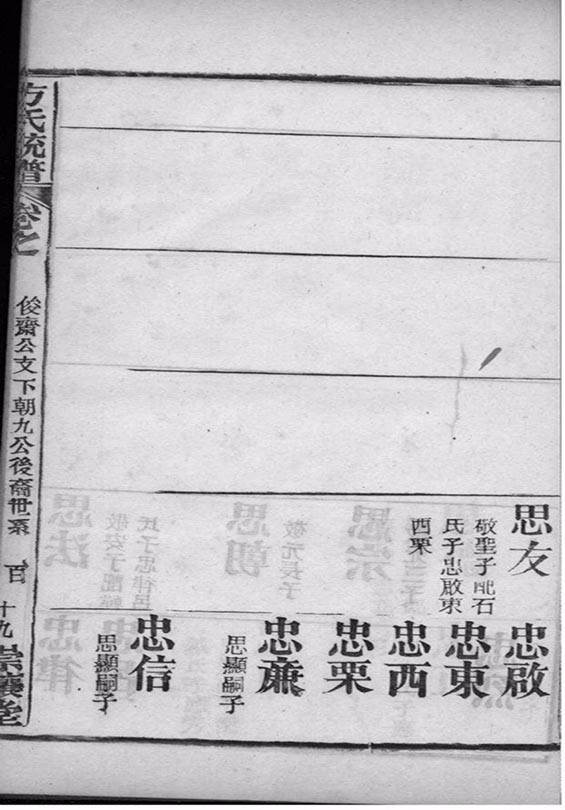 思友
敬聖子配石
氏子忠啟東
西栗
忠啟
忠東
忠西
忠栗
忠廉
思顯嗣子
忠信
思顯嗣子
方氏統譜
卷之
俊齋公支下朝九公後裔世系
百
十九
崇讓堂